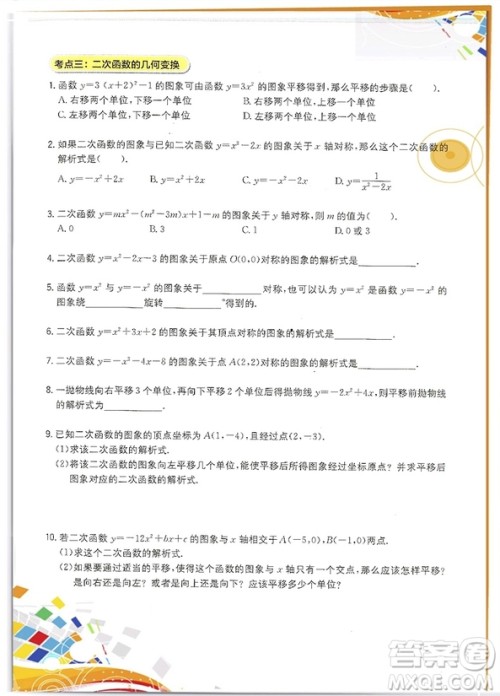 考点三：二次函数的几何变换
1. 函数 y=3(x+2)²-1 的图象可由函数 y=3x² 的图象平移得到，那么平移的步骤是（ ）.
A. 右移两个单位，下移一个单位 B. 右移两个单位，上移一个单位
C. 左移两个单位，下移一个单位 D. 左移两个单位，上移一个单位
2. 如果二次函数的图象与已知二次函数 y=x²-2x 的图象关于 x 轴对称，那么这个二次函数的
解析式是（ ）.
A. y=-x²+2x B. y=x²+2x C. y=-x²-2x D. y=1/(x²-2x)
3. 二次函数 y=mx²-(m²-3m)x+1-m 的图象关于 y 轴对称，则 m 的值为（ ）.
A. 0 B. 3 C. 1 D. 0 或 3
4. 二次函数 y=x²-2x-3 的图象关于原点 O(0,0)对称的图象的解析式是__________.
5. 函数 y=x² 与 y=-x² 的图象关于__________对称，也可以认为 y=-x² 是函数 y=x² 的
图象绕__________旋转__________°得到的.
6. 二次函数 y=x²+3x+2 的图象关于其顶点对称的图象的解析式是__________.
7. 二次函数 y=-x²-4x-8 的图象关于点 A(2,2)对称的图象的解析式是__________.
8. 一抛物线向右平移 3 个单位，再向下平移 2 个单位后得抛物线 y=-2x²+4x，则平移前抛物
线的解析式为__________.
9. 已知二次函数的图象的顶点坐标为 A(1,-4)，且经过点(2,-3).
(1) 求该二次函数的解析式.
(2) 将该二次函数的图象向左平移几个单位，能使得该函数的图象经过坐标原点？并求平移后
图象对应的二次函数的解析式.
10. 若二次函数 y=-12x²+bx+c 的图象与 x 轴相交于 A(-5,0)，B(-1,0)两点.
(1) 求这个二次函数的解析式.
(2) 如果要通过适当的平移，使得这个函数的图象与 x 轴只有一个交点，那么应该怎样平移？
是向右还是向左？或者是向上还是向下？应该平移多少个单位？
答案圈
MXQE.COM